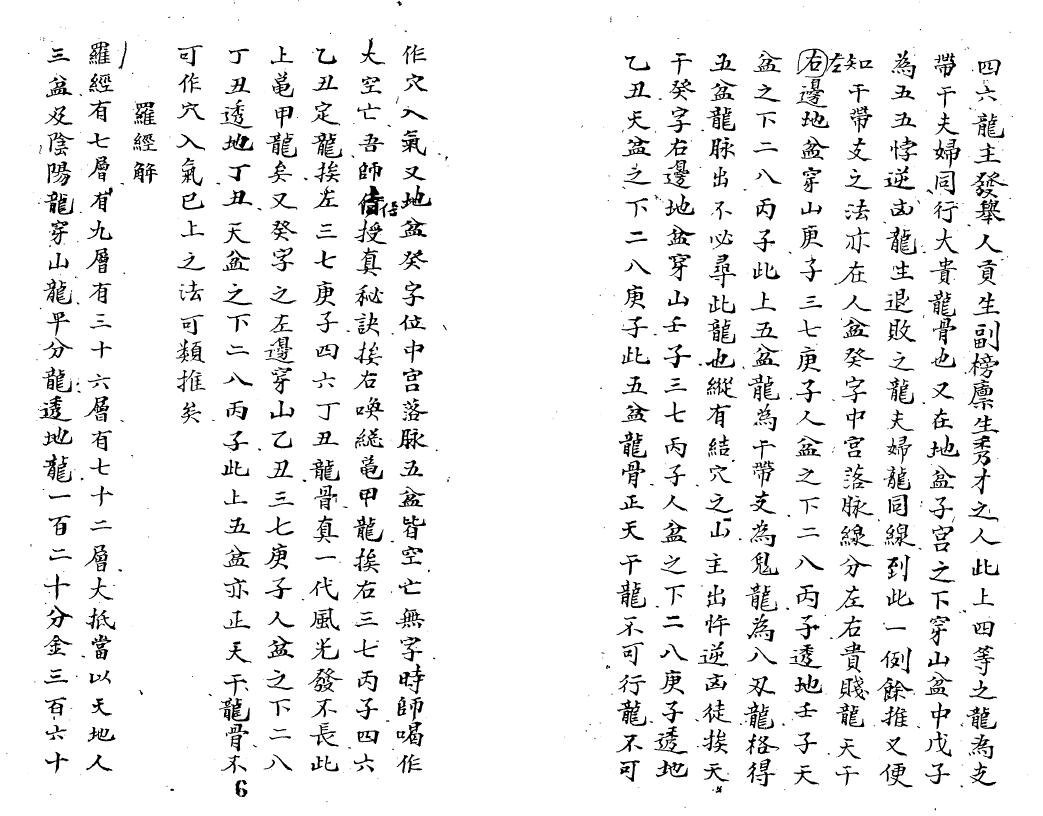 四六龍主發舉人貢生副榜廩生秀才之人此上四等之龍為支
帶干夫婦同行大貴龍骨也又在地盆子宮之下穿山盆中戊子
為五五悖逆凶龍生退敗之龍夫婦龍同線到此一例餘推又便
知干帶支之法亦在人盆癸字中宮落脉線分左右貴賤龍天干
左
右邊地盆穿山庚子三七庚子人盆之下二八丙子透地壬子天
盆之下二八丙子此上五盆龍為干帶支為鬼龍為八刃龍格得
五盆龍脉出不必尋此龍也縱有結穴之山主出忤逆凶徒挨天
干癸字右邊地盆穿山壬子三七丙子人盆之下二八庚子透地
乙丑天盆之下二八庚子此五盆龍骨正天干龍不可行龍不可
作穴入氣又地盆癸字位中宮落脉五盆皆空亡無字時師喝作
大空亡吾師授真秘訣挨右喚総黾甲龍挨右三七丙子四六
乙丑定龍挨左三七庚子四六丁丑龍骨真一代風光發不長此
上黾甲龍矣又癸字之左邊穿山乙丑三七庚子人盆之下二八
丁丑透地丁丑天盆之下二八丙子此上五盆亦正天干龍骨不
可作穴入氣已上之法可類推矣
羅經解
羅經有七層有九層有三十六層有七十二層大抵當以天地人
三盆及陰陽龍穿山龍平分龍透地龍一百二十分金三百六十
6